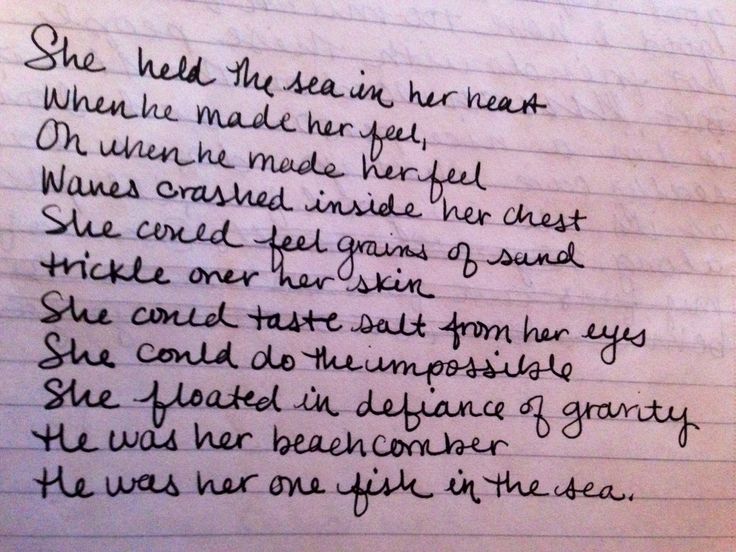 She held the sea in her heart
When he made her feel,
Oh when he made her feel
Waves crashed inside her chest
She could feel grains of sand
trickle over her skin
She could taste salt from her eyes
She could do the impossible
She floated in defiance of gravity
He was her beachcomber
He was her one fish in the sea.